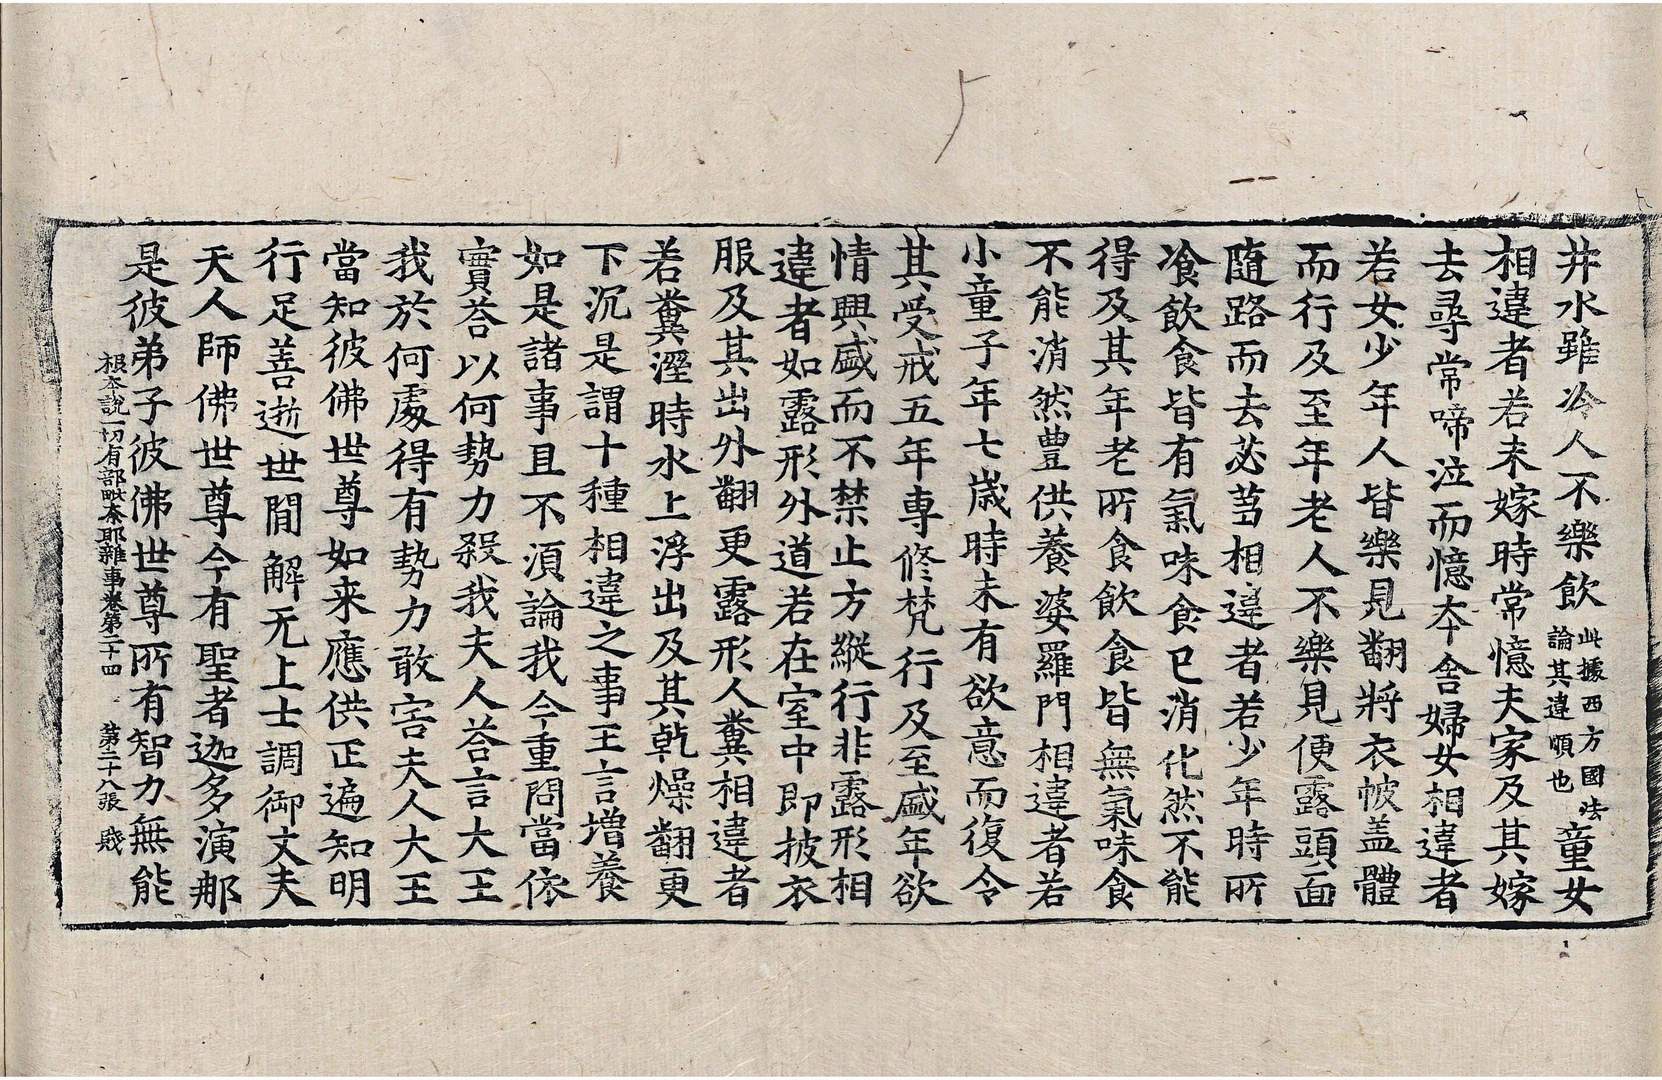 井水雖冷人不樂飲此據西方國法論其違順也童女
相違者若未嫁時常憶夫家及其嫁
去尋常啼泣而憶本舍婦女相違者
若女少年人皆樂見翻將衣帔盖體
而行及至年老人不樂見便露頭面
隨路而去苾蒭相違者若少年時所
飡飲食皆有氣味食已消化然不能
得及其年老所食飲食皆無氣味食
不能消然豊供養婆羅門相違者若
小童子年七歲時未有欲意而復令
其受戒五年專修梵行及至盛年欲
情興盛而不禁止方縱行非露形相
違者如露形外道若在室中即披衣
服及其出外翻更露形人糞相違者
若糞溼時水上浮出及其乾燥翻更
下沉是謂十種相違之事王言增養
如是諸事且不須論我今重問當依
實荅以何勢力殺我夫人荅言大王
我於何處得有勢力敢害夫人大王
當知彼佛世尊如来應供正遍知明
行足善逝世間解无上士調御丈夫
天人師佛世尊今有聖者迦多演那
是彼弟子彼佛世尊所有智力無能
根本說一切有部毗奈耶雜事卷第二十四 第二十八張 賤